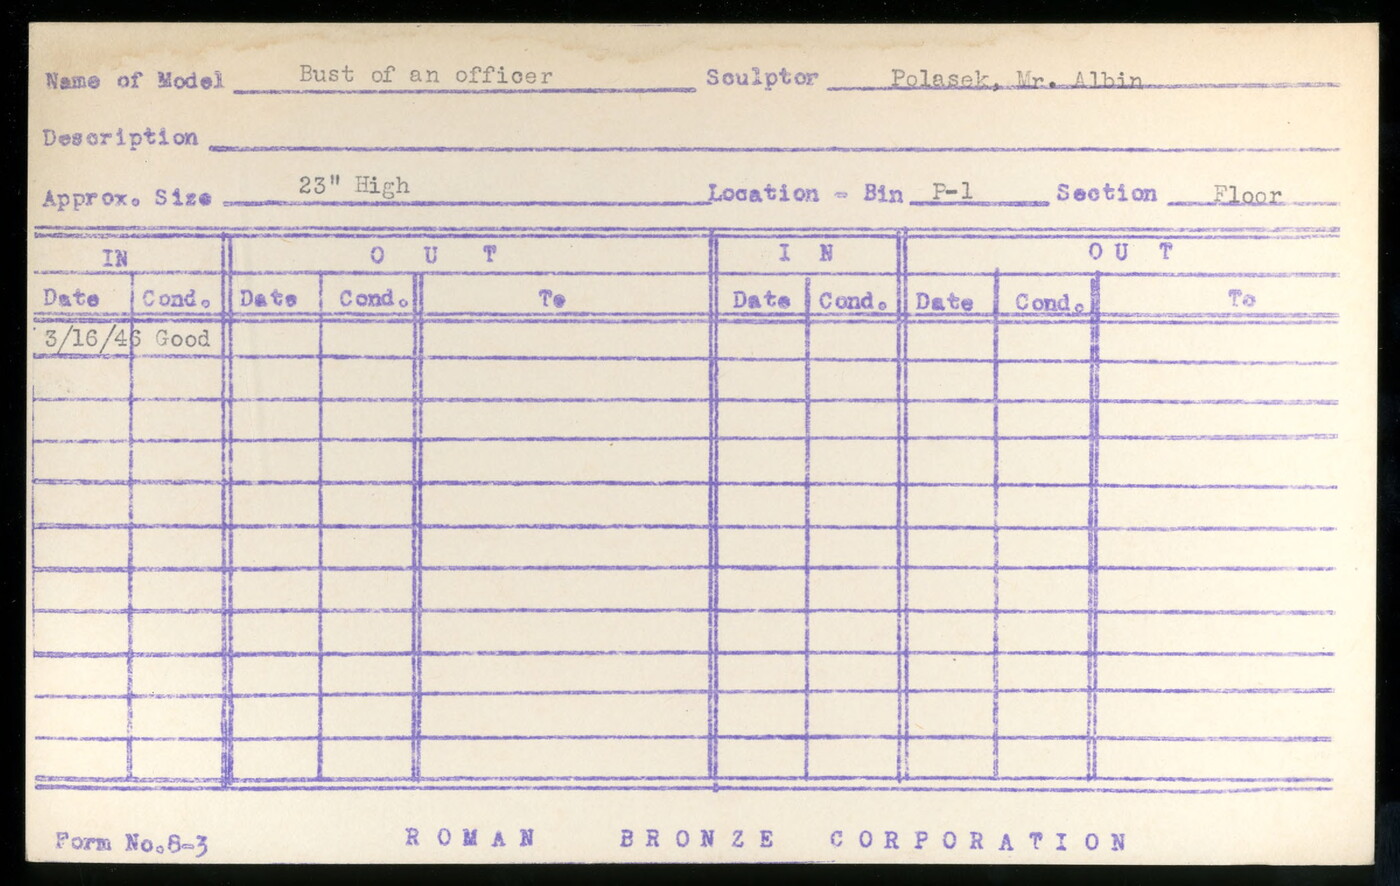 Name of Model Bust of an officer Sculptor Polasek, Mr. Albin
Description
Approx. Size 23" High Location - Bin P-1 Section Floor
IN OUT IN OUT
Date Cond. Date Cond. To Date Cond. Date Cond. To
3/16/46 Good
Form No.8-3 ROMAN BRONZE CORPORATION